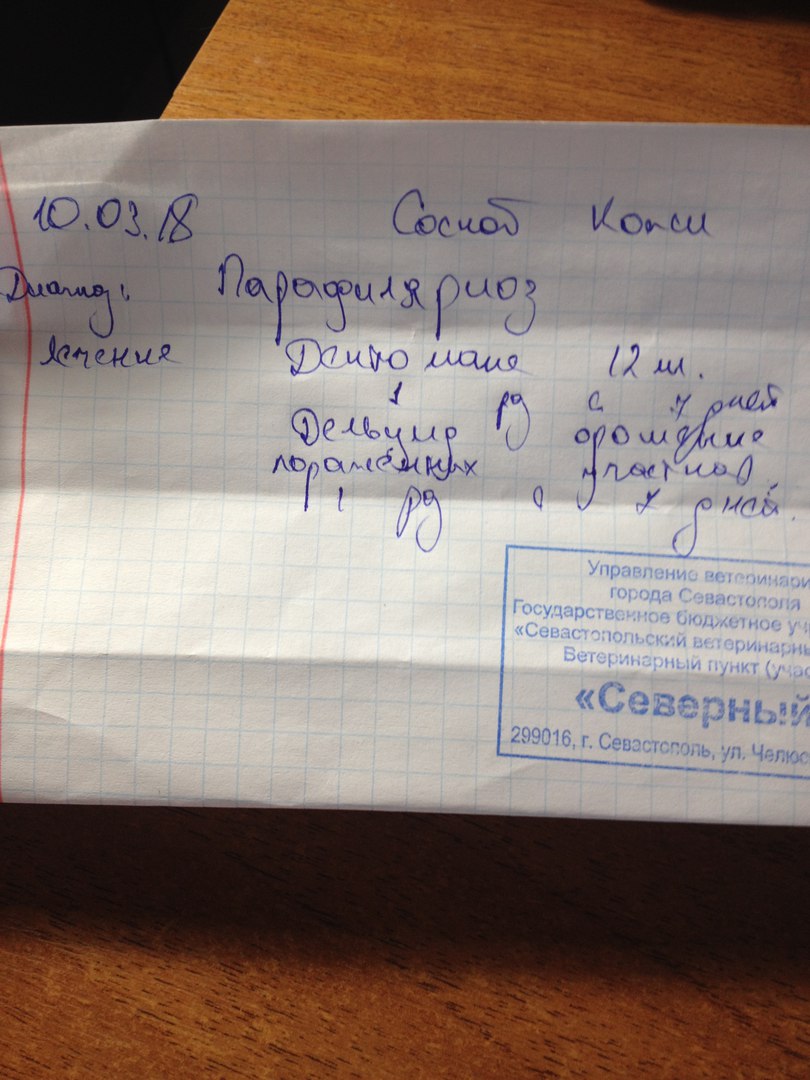 10.03.18 Соскоб Кожи
Диагноз: Парафиляриоз
лечение 12 мл.
1 рд в 7 дней
Дельцид орошение
поражённых участков
1 рд в 7 дней.
Управление ветеринари
города Севастополя
Государственное бюджетное уч
«Севастопольский ветеринарны
Ветеринарный пункт (учас
«Северный
299016, г. Севастополь, ул. Челюс